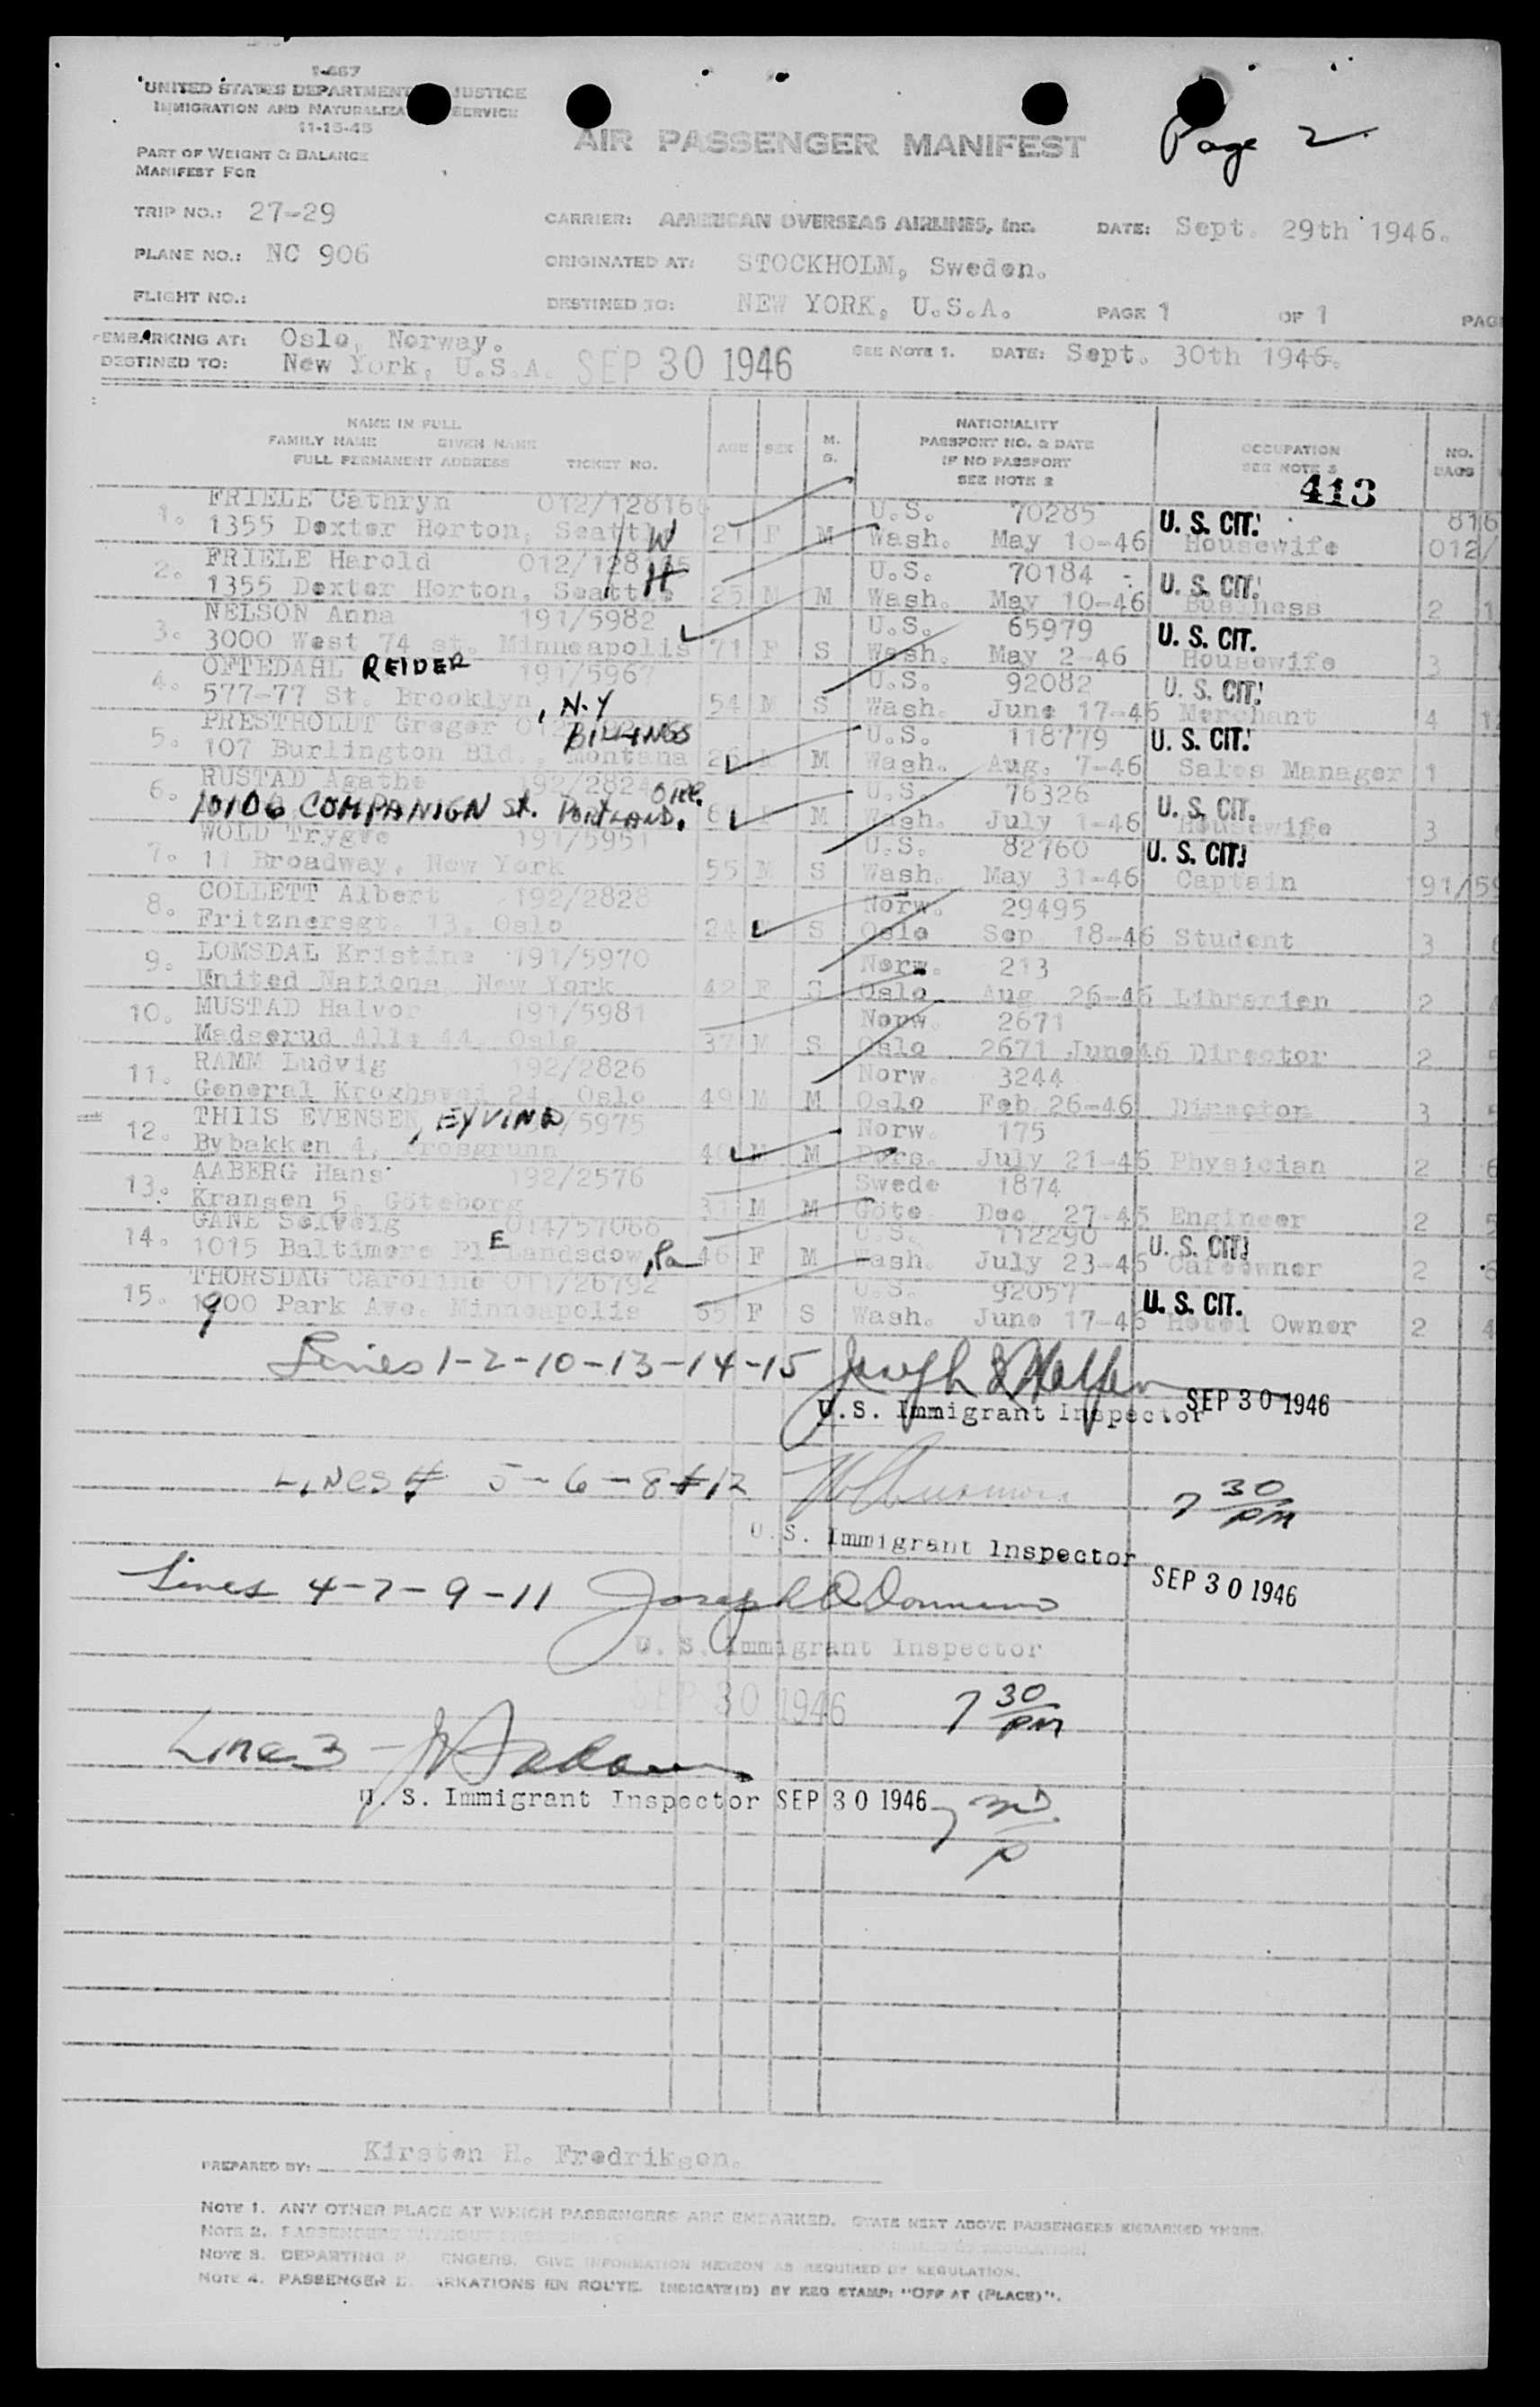 1-467
UNITED STATES DEPARTMENT JUSTICE
IMMIGRATION AND NATURALIZA SERVICE
11-15-45
AIR PASSENGER MANIFEST
Page 2
PART OF WEIGHT & BALANCE
MANIFEST FOR
TRIP NO.: 27-29 CARRIER: AMERICAN OVERSEAS AIRLINES, Inc. DATE: Sept. 29th 1946.
PLANE NO.: NC 906 ORIGINATED AT: STOCKHOLM, Sweden.
FLIGHT NO.: DESTINED TO: NEW YORK, U.S.A. PAGE 1 OF 1 PAG
EMBARKING AT: Oslo, Norway. SEE NOTE 1. DATE: Sept. 30th 1946.
DESTINED TO: New York, U.S.A. SEP 30 1946
NAME IN FULL NATIONALITY
FAMILY NAME GIVEN NAME AGE SEX M. S. PASSPORT NO. & DATE OCCUPATION NO. BAGS
FULL PERMANENT ADDRESS TICKET NO. IF NO PASSPORT SEE NOTE 3
SEE NOTE 2 413
1. FRIELE Cathryn 012/128166 U.S. 70285 U. S. CIT. 816
1355 Dexter Horton, Seattle W 21 F M Wash. May 10-46 Housewife 012/
2. FRIELE Harold 012/128165 U.S. 70184 U. S. CIT.
1355 Dexter Horton, Seattle H 25 M M Wash. May 10-46 Business 2 1
3. NELSON Anna 191/5982 U.S. 65979 U. S. CIT.
3000 West 74 st. Minneapolis 71 F S Wash. May 2-46 Housewife 3
4. OFTEDAHL REIDER 191/5967 U.S. 92082 U. S. CIT.
577-77 St. Brooklyn, N.Y 54 M S Wash. June 17-46 Merchant 4 12
5. PRESTHOLDT Greger BILLINGS U.S. 118779 U. S. CIT.
107 Burlington Bld., Montana 26 M Wash. Aug. 7-46 Sales Manager 1
6. RUSTAD Agathe 192/2824 ORE. U.S. 76326 U. S. CIT.
10106 COMPANIGN St. PORTLAND. M Wash. July 1-46 Housewife 3
7. WOLD Trygve 191/5951 U.S. 82760 U. S. CIT.
11 Broadway, New York 55 M S Wash. May 31-46 Captain 191/59
8. COLLETT Albert 192/2828 Norw. 29495
Fritznersgt. 13, Oslo 24 S Oslo Sep 18-46 Student 3
9. LOMSDAL Kristine 191/5970 Norw. 213
United Nations, New York 42 F S Oslo Aug 26-46 Librarian 2
10. MUSTAD Halvor 191/5981 Norw. 2671
Madserud Alle 44, Oslo 37 M S Oslo 2671 June46 Director 2
11. RAMM Ludvig 192/2826 Norw. 3244
General Kroghsvei 24, Oslo 49 M M Oslo Feb 26-46 Director 3
12. THIIS EVENSEN, EYVIND /5975 Norw. 175
Bybakken 4, Prosgrunn 40 M M Pors. July 21-46 Physician 2
13. AABERG Hans 192/2576 Swede 1874
Kransen 5, Göteborg 31 M M Göte. Dec 27-45 Engineer 2
14. GANE Solveig 014/57066 U.S. 112290 U. S. CIT.
1015 Baltimore Pl E Landsdow, Pa 46 F M Wash. July 23-46 Cafeowner 2
15. THORSDAG Caroline 011/26792 U.S. 92057 U. S. CIT.
1900 Park Ave. Minneapolis 65 F S Wash. June 17-46 Hotel Owner 2 4
Lines 1-2-10-13-14-15
U.S. Immigrant Inspector SEP 30 1946
Lines # 5-6-8 & 12 7 30 PM
U.S. Immigrant Inspector
SEP 30 1946
Lines 4-7-9-11
U. S. Immigrant Inspector
SEP 30 1946 7 30 PM
Line 3
U. S. Immigrant Inspector SEP 30 1946 7
PREPARED BY: Kirsten H. Fredrikson.
NOTE 1. ANY OTHER PLACE AT WHICH PASSENGERS ARE EMBARKED. STATE NEXT ABOVE PASSENGERS EMBARKED THERE.
NOTE 2. PASSENGERS WITHOUT
NOTE 3. DEPARTING P ENGERS. GIVE INFORMATION HEREON AS REQUIRED BY REGULATION.
NOTE 4. PASSENGER D ARKATIONS EN ROUTE. INDICATE(D) BY RED STAMP: "OFF AT (PLACE)".